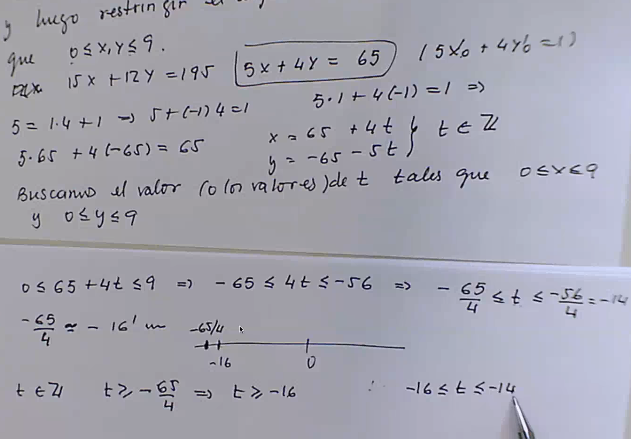 y luego restringir el
que 0 ≤ x, y ≤ 9.
15x + 12y = 195 | 5x + 4y = 65 | (5x₀ + 4y₀ = 1)
5 = 1·4 + 1 => 5 + (-1) 4 = 1 5·1 + 4(-1) = 1 =>
5·65 + 4(-65) = 65 x = 65 + 4t } t ∈ ℤ
y = -65 - 5t
Buscamos el valor (o los valores) de t tales que 0 ≤ x ≤ 9
y 0 ≤ y ≤ 9
0 ≤ 65 + 4t ≤ 9 => -65 ≤ 4t ≤ -56 => -65/4 ≤ t ≤ -56/4 = -14
-65/4 ≃ -16' -65/4
-16 0
t ∈ ℤ t ≥ -65/4 => t ≥ -16 ∴ -16 ≤ t ≤ -14